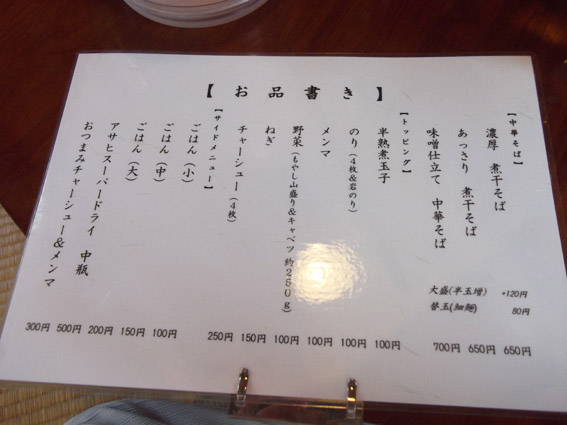 【お品書き】
【中華そば】
濃厚 煮干そば 650円
あっさり 煮干そば 650円
味噌仕立て 中華そば 700円
大盛(半玉増) +120円
替玉(細麺) 80円
【トッピング】
半熟煮玉子 100円
のり(4枚&岩のり) 100円
メンマ 100円
野菜(もやし山盛り&キャベツ 約250g) 100円
ねぎ 150円
チャーシュー(4枚) 250円
【サイドメニュー】
ごはん(小) 100円
ごはん(中) 150円
ごはん(大) 200円
アサヒスーパードライ 中瓶 500円
おつまみチャーシュー&メンマ 300円